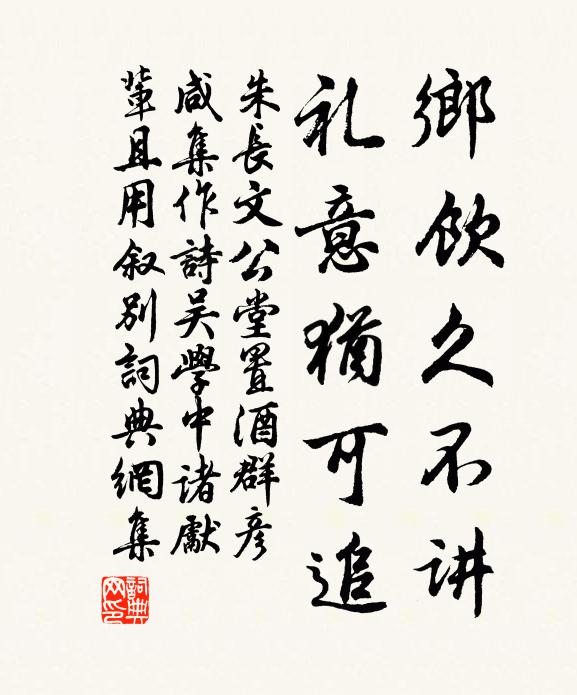 鄉飲久不讲
礼意猶可追
朱長文公堂置酒群彦
咸集作詩吴學中諸獻
輩且用叙别詞典網集
詞典网印